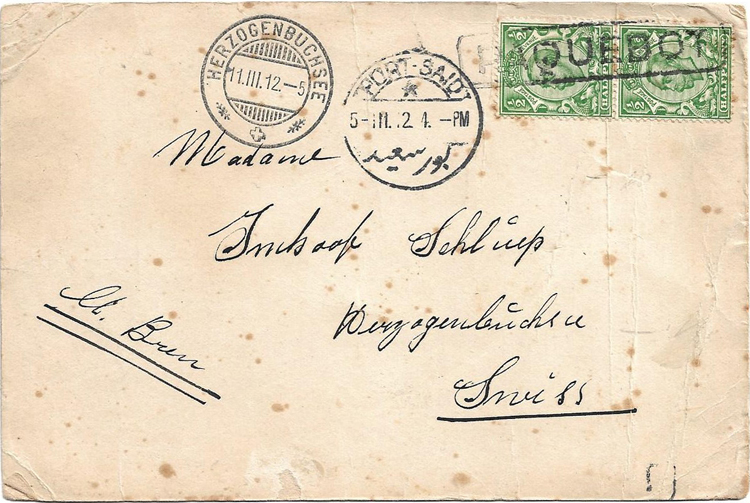 HERZOGENBUCHSEE
11.III.12-5
PORT-SAID
5-III.12 4.-PM
بور سعيد
PAQUEBOT
½ ½
HALFPENNY
Madame
Imhoof Schlüep
Herzogenbuchsee
Swiss
Ct. Bern